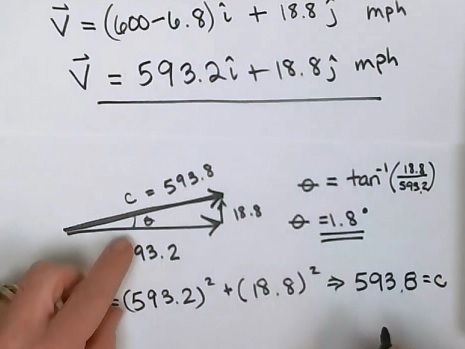 V⃗ = (600-6.8)î + 18.8ĵ mph
V⃗ = 593.2î + 18.8ĵ mph
c = 593.8
θ
18.8
93.2
θ = tan⁻¹(18.8/593.2)
θ = 1.8°
=(593.2)² + (18.8)² ⇒ 593.8 = c